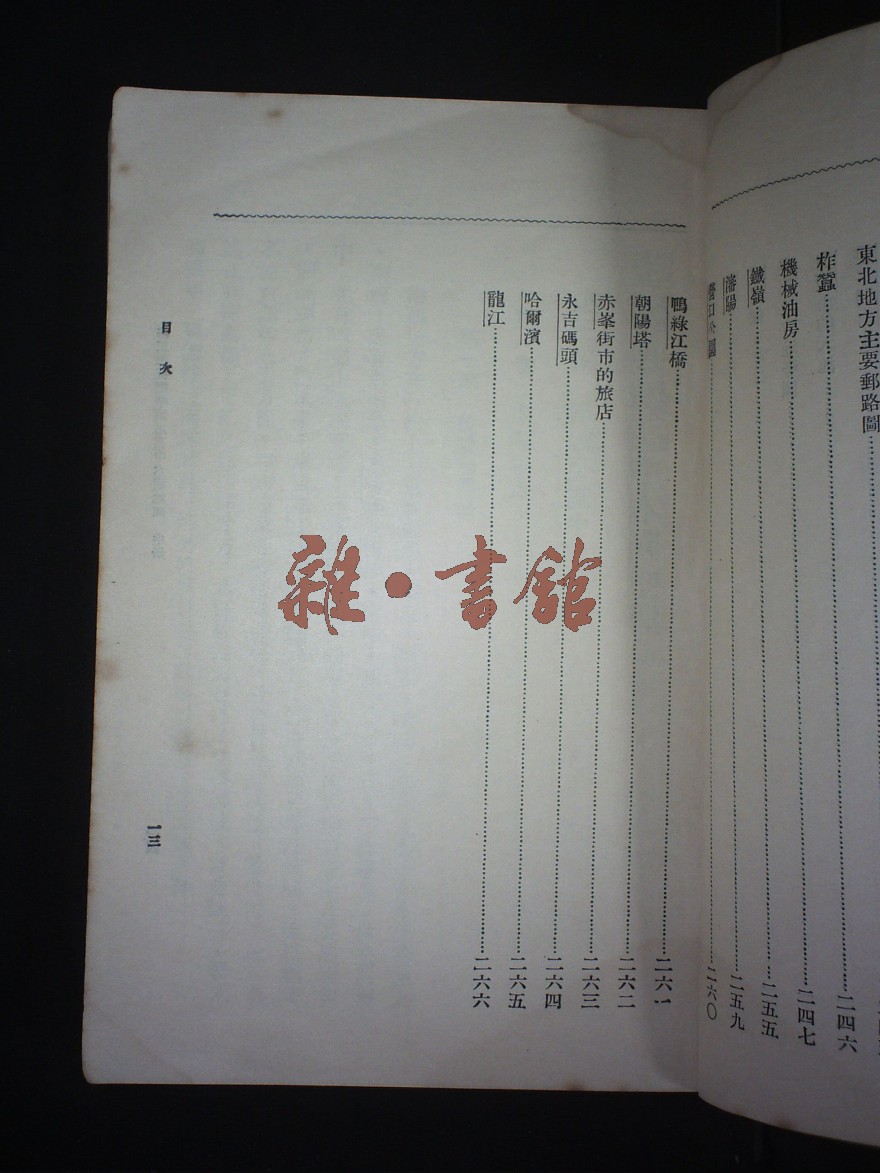 東北地方主要郵路圖
柞蠶……二四六
機械油房……二四七
鐵嶺……二五五
瀋陽……二五九
營口公園……二六〇
鴨綠江橋……二六一
朝陽塔……二六二
赤峯街市的旅店……二六三
永吉碼頭……二六四
哈爾濱……二六五
龍江……二六六
目次
一三
雜·書館